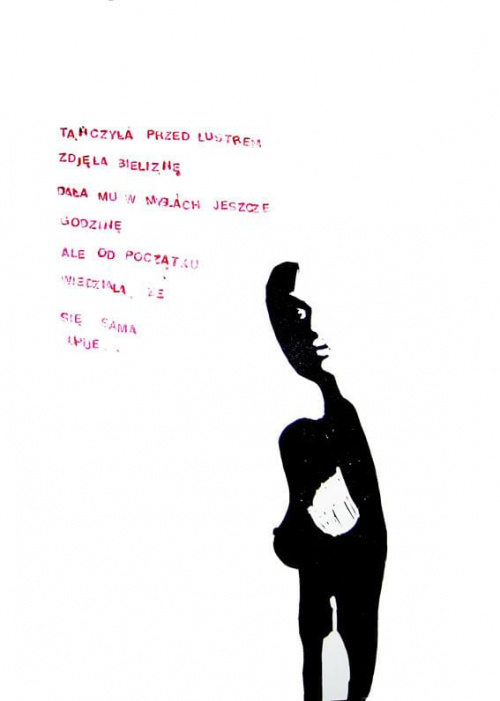 TAŃCZYŁA PRZED LUSTREM
ZDJĘLA BIELIZNĘ
DAŁA MU W MYŚLACH JESZCZE
GODZINĘ
ALE OD POCZĄTKU
WIEDZIAŁA, ŻE
SIĘ SAMA
UPIJE...